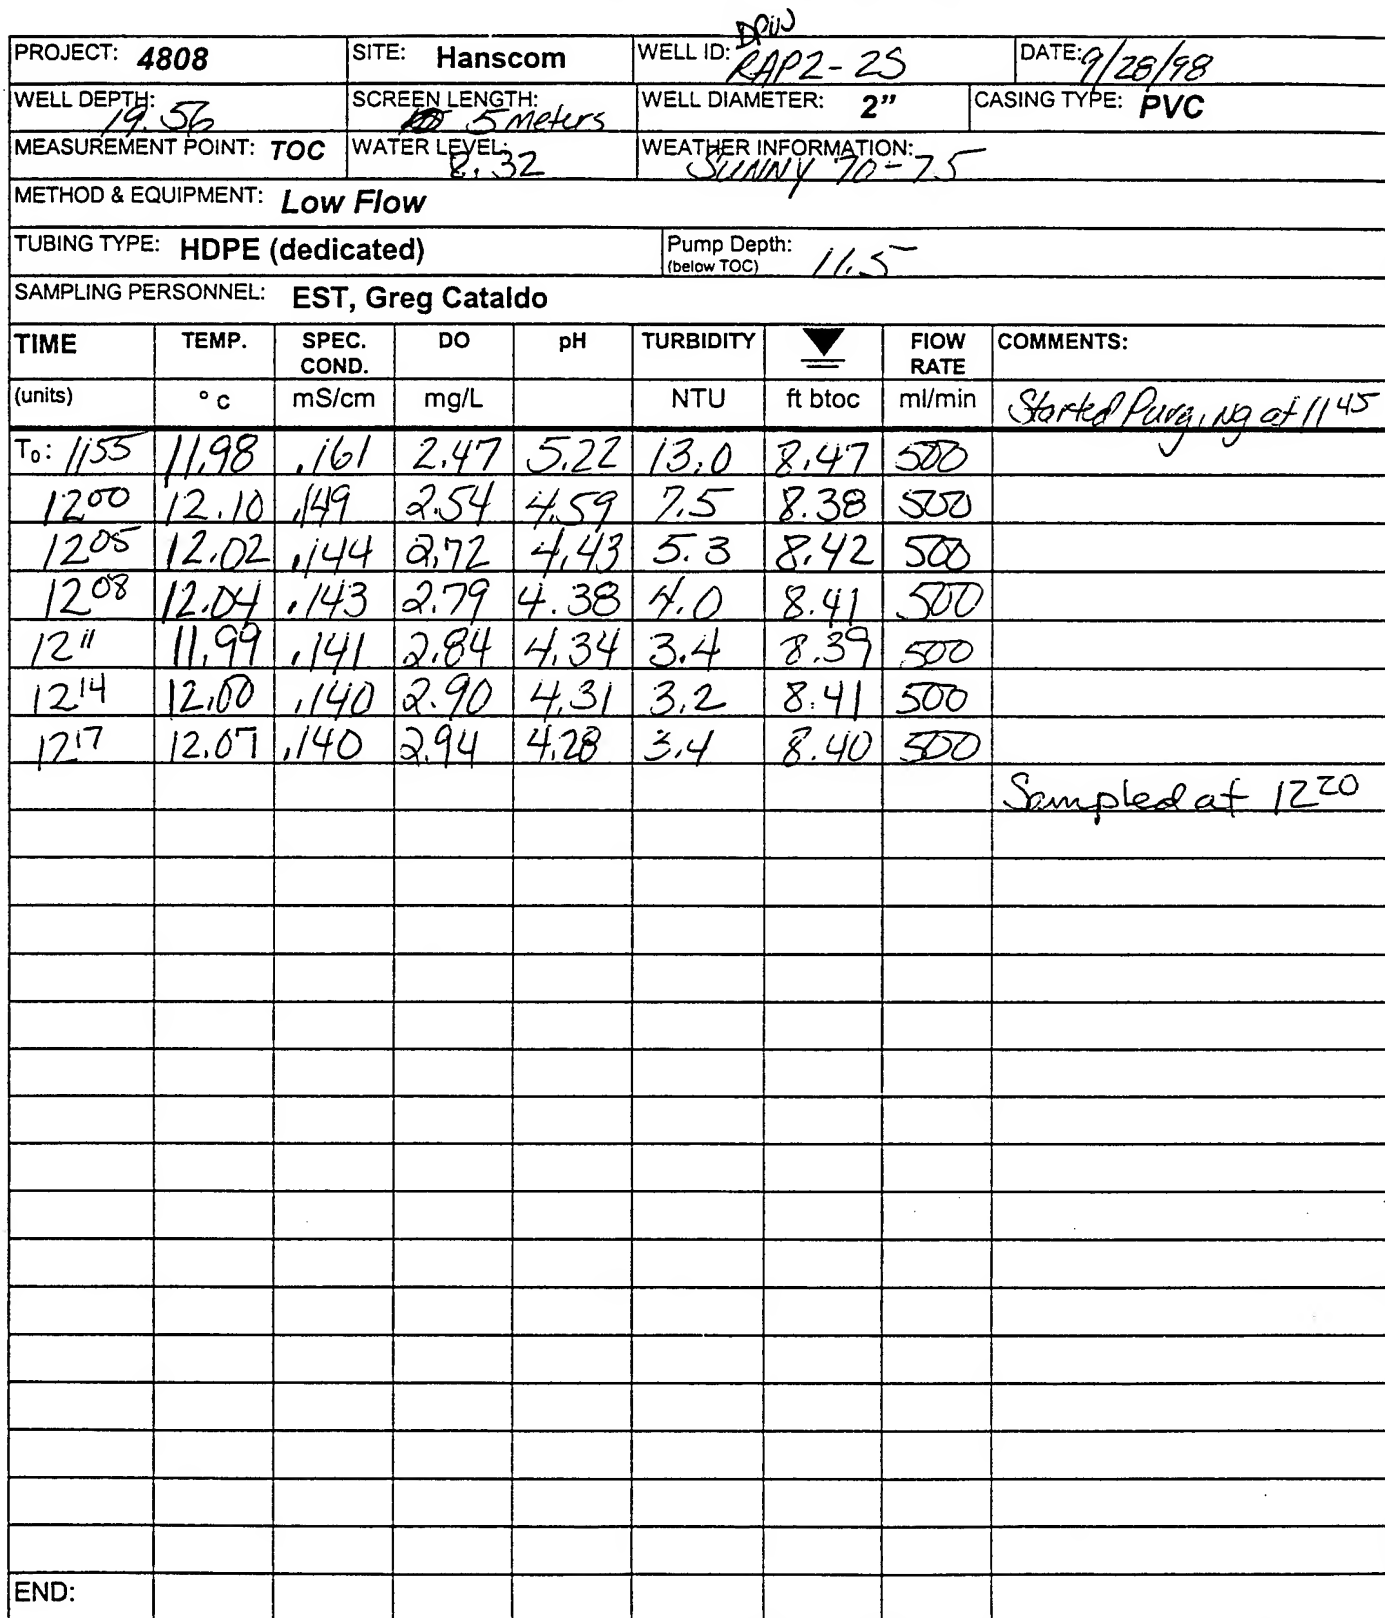 DPW
PROJECT: 4808 SITE: Hanscom WELL ID: RAP2-2S DATE: 9/28/98
WELL DEPTH: 19.56 SCREEN LENGTH: 5 meters WELL DIAMETER: 2" CASING TYPE: PVC
MEASUREMENT POINT: TOC WATER LEVEL: 8.32 WEATHER INFORMATION: SUNNY 70-75
METHOD & EQUIPMENT: Low Flow
TUBING TYPE: HDPE (dedicated) Pump Depth: (below TOC) 11.5
SAMPLING PERSONNEL: EST, Greg Cataldo
TIME TEMP. SPEC. COND. DO pH TURBIDITY FlOW RATE COMMENTS:
(units) ° c mS/cm mg/L NTU ft btoc ml/min Started Purging at 1145
T₀: 1155 11.98 .161 2.47 5.22 13.0 8.47 500
1200 12.10 .149 2.54 4.59 7.5 8.38 500
1205 12.02 .144 2.72 4.43 5.3 8.42 500
1208 12.04 .143 2.79 4.38 4.0 8.41 500
1211 11.99 .141 2.84 4.34 3.4 8.39 500
1214 12.00 .140 2.90 4.31 3.2 8.41 500
1217 12.07 .140 2.94 4.28 3.4 8.40 500
Sampled at 1220
END: